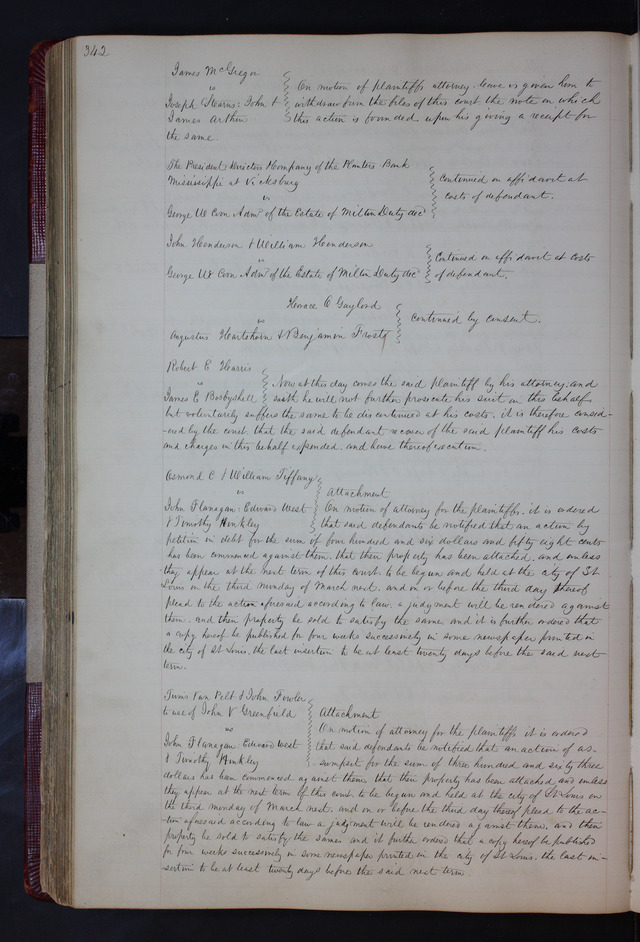 342
James McGregor
vs
Joseph Stearns, John &
James Arthur
On motion of plaintiffs attorney leave is given him to
withdraw from the files of this court the note on which
this action is founded upon his giving a receipt for
the same.
The President Directors & Company of the Planters Bank
Mississippi at Vicksburg
vs
George W Coon Admr of the Estate of Milton Duty decd
Continued on affidavit at
costs of defendant.
John Henderson & William Henderson
vs
George W Coon Admr of the Estate of Milton Duty decd
Continued on affidavit at costs
of defendant.
Horace C Gaylord
vs
Augustus Hartshorn & Benjamin Frost
continued by consent.
Robert E Harris
vs
James E Bosbyshell
Now at this day comes the said plaintiff by his attorney, and
saith he will not further prosecute his suit in this behalf
but voluntarily suffers the same to be discontinued at his costs, it is therefore consid-
-ered by the court that the said defendant recover of the said plaintiff his costs
and charges in this behalf expended, and have thereof execution.
Osmond C & William Tiffany
vs
John Flanagan, Edward West
& Timothy Hinkley
Attachment
On motion of attorney for the plaintiffs, it is ordered
that said defendants be notified that an action by
petition in debt for the sum of four hundred and six dollars and fifty eight cents
has been commenced against them, that their property has been attached, and unless
they appear at the next term of this court, to be begun and held at the city of St
Louis on the third monday of March next, and on or before the third day thereof
plead to the action aforesaid according to law, a judgment will be rendered against
them, and their property be sold to satisfy the same and it is further ordered that
a copy hereof be published for four weeks successively in some newspaper printed in
the city of St Louis, the last insertion to be at least twenty days before the said next
term.
Tunis Van Pelt & John Fowler
to use of John V Greenfield
vs
John Flanagan, Edward West
& Timothy Hinkley
Attachment
On motion of attorney for the plaintiffs it is ordered
that said defendants be notified that an action of as-
sumpsit for the sum of three hundred and sixty three
dollars has been commenced against them, that their property has been attached, and unless
they appear at the next term of this court to be begun and held at the city of St Louis on
the third monday of March next, and on or before the third day thereof plead to the ac-
-tion aforesaid according to law a judgment will be rendered against them, and their
property be sold to satisfy the same and it further ordered that a copy hereof be published
for four weeks successively in some newspaper printed in the city of St Louis, the last in-
-sertion to be at least twenty days before the said next term.